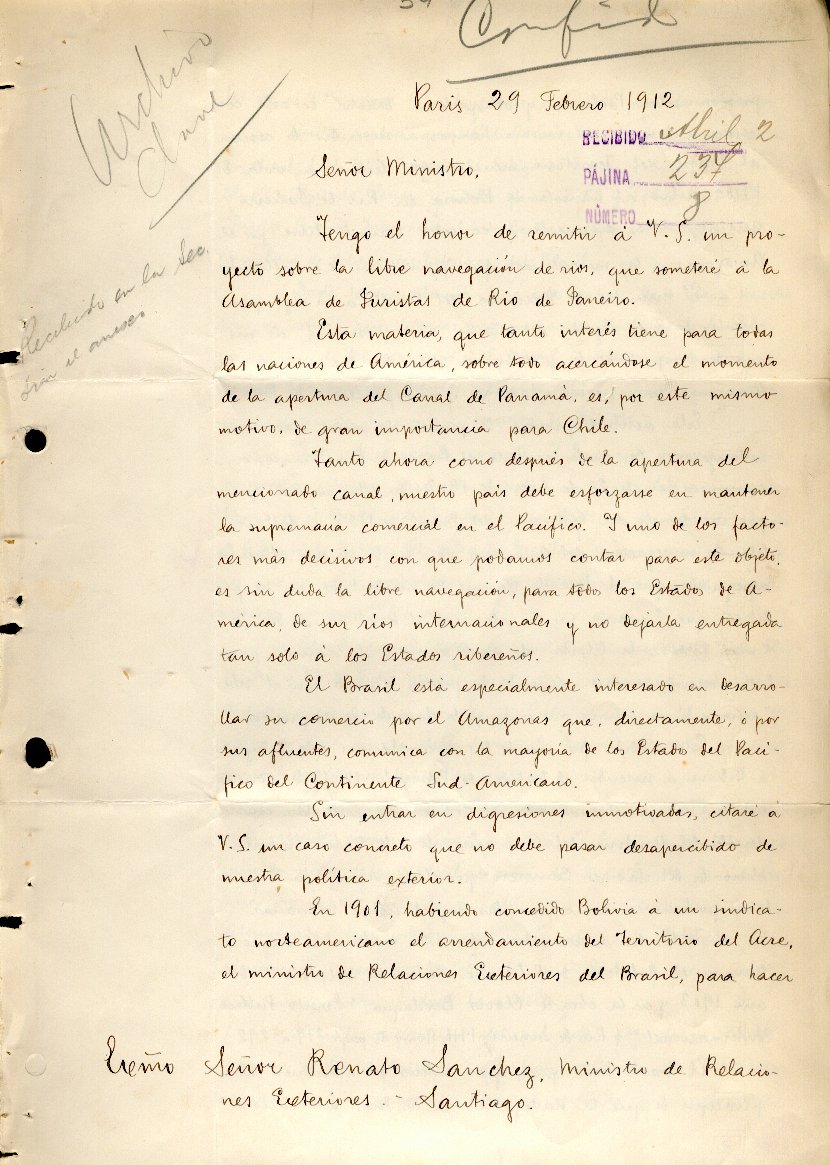 Confid
Archivo
Clave
Paris 29 Febrero 1912
RECIBIDO Abril 2
Señor Ministro,
PÁJINA 237
NÚMERO 8
Tengo el honor de remitir á V. S. un pro-
yecto sobre la libre navegación de rios, que someteré á la
Asamblea de Juristas de Rio de Janeiro.
Recibido en la Sec.
sin el anexo
Esta materia, que tanto interés tiene para todas
las naciones de América, sobre todo acercándose el momento
de la apertura del Canal de Panamá, es, por este mismo
motivo, de gran importancia para Chile.
Tanto ahora como después de la apertura del
mencionado canal, nuestro país debe esforzarse en mantener
la supremacía comercial en el Pacífico. I uno de los facto-
res más decisivos con que podamos contar para este objeto,
es sin duda la libre navegación, para todos los Estados de A-
mérica, de sus ríos internacionales y no dejarla entregada
tan solo á los Estados ribereños.
El Brasil está especialmente interesado en desarro-
llar su comercio por el Amazonas que, directamente, ó por
sus afluentes, comunica con la mayoría de los Estados del Pací-
fico del Continente Sud-Americano.
Sin entrar en digresiones inmotivadas, citaré á
V. S. un caso concreto que no debe pasar desapercibido de
nuestra política exterior.
En 1901, habiendo concedido Bolivia á un sindica-
to norteamericano el arrendamiento del Territorio del Acre,
el ministro de Relaciones Exteriores del Brasil, para hacer
Exmo Señor Renato Sanchez, Ministro de Relacio-
nes Exteriores.- Santiago.